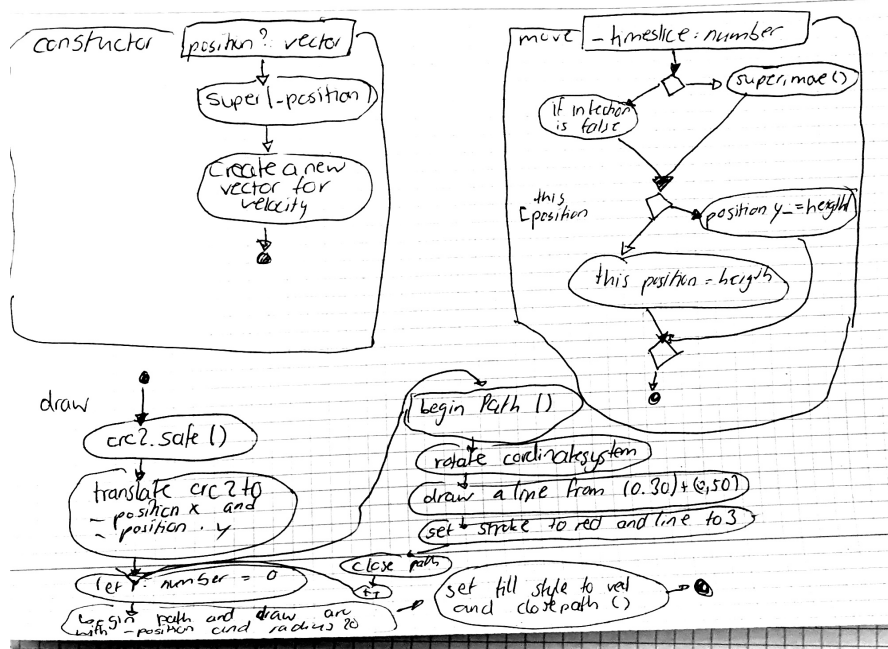 constuctor
position?: vector
super(-position)
Create a new
vector for
velocity
move
-timeslice: number
super.move()
If infection
is false
this
[position
position y_=heigth
this position = heigth
draw
crc2.safe()
translate crc2 to
- position x and
- position . y
let : number = 0
begin path and draw arc
with -position and radius 20
begin Path ()
rotate cordinatesystem
draw a line from (0.30)+(0,50)
set stroke to red and line to 3
close path
set fill style to red
and closepath ()